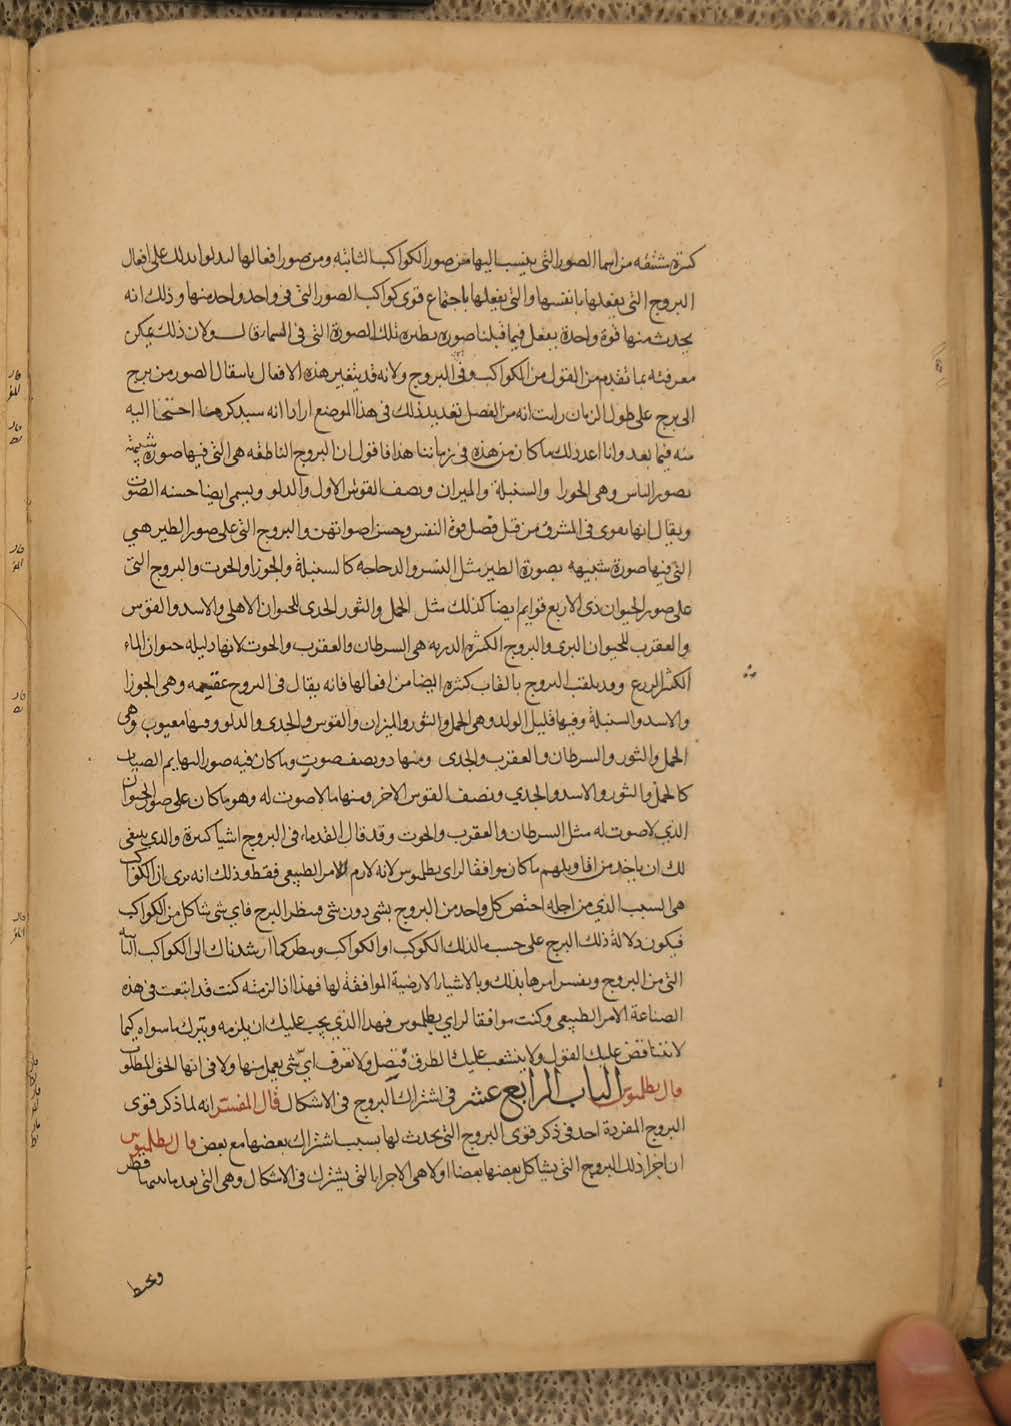 كثيرة مشتقه من اسما الصور التى ينسب اليها من صور الكواكب الثابته ومن صور افعالها ليدلوا بذلك على افعال
البروج التى يفعلها بانفسها والتى يفعلها باجتماع قوى كواكب الصور التى فى واحد واحد منها وذلك انه
يحدث منها قوة واحدة يفعل فيما قبلنا صوره نظيره تلك الصورة التى فى السما قال ولان ذلك يمكن
معرفته بما تقدم من القول من الكواكب وفى البروج ولانه قد يتغير هذه الافعال بانتقال الصور من برج
الى برج على طول الزمان رايت انه من الفضل تعديد ذلك فى هذا الموضع اراد انه سيذكر متى احتجنا اليه
منه فيما بعد وانا اعدد لك ما كان من هذه فى زماننا هذا فاقول ان البروج الناطقه هى التى فيها صورة شبيهة
بصور الناس وهى الجوزا والسنبلة والميزان ونصف القوس الاول والدلو ويسمى ايضا حسنه الصوت
ويقال انها تقوى فى المشرق من قبل فضل قوة النفس وحسن اصواتهن والبروج التى على صور الطير هى
التى فيها صورة شبيهه بصورة الطير مثل النسر والدجاجه كالسنبلة والجوزا والحوت والبروج التى
على صور الحيوان ذى الاربع قوايم ايضا كذلك مثل الحمل والثور الجدى للحيوان الاهلى والاسد والقوس
والعقرب للحيوان البرى والبروج الكثيرة الذريه هى السرطان والعقرب والحوت لانها دليله حيوان الماء
الكثير الزرع وقد يلقب البروج بالقاب كثيره ايضا من افعالها فانه يقال فى البروج عقيمه وهى الجوزا
والاسد والسنبلة وفيها قليل الولد وهى الحمل والثور والميزان والقوس والجدى والدلو وفيها معيوب وهى
الحمل والثور والسرطان والعقرب والجدى ومنها ذو نصف صوت وما كان فيه صور البهايم
كالحمل والثور والاسد والجدي ونصف القوس الاخر ومنها ما لا صوت له وهو ما كان على صور الحيوان
الذي لا صوت له مثل السرطان والعقرب والحوت وقد قال القدماء فى البروج اشيا كثيرة والذي ينبغى
لك ان ياخذ من اقاويلهم ما كان موافقا لراى بطلميوس لانه لازم الامر الطبيعى فقط وذلك انه يرى ان الكواكب
هى السبب الذي من اجله اختص كل واحد من البروج بشى دون شى وينظر البرج فاي شى شاكل من الكواكب
فيكون دلالة ذلك البرج على حسب ما لذلك الكوكب او الكواكب وينظر كما ارشدناك الى الكواكب الثابته
التى من البروج ونفسر امرها بذلك وبالاشياء الارضية الموافقة لها فهذا اذا لزمته كنت قد اتبعت فى هذه
الصناعة الامر الطبيعى وكنت موافقا لراي بطلميوس فهذا الذي يجب عليك ان يلزمه ويترك ما سواه كيما
لا تتناقض عليك القول ولا يتشعب عليك الطرق فيضل ولا تعرف اي شي يعمل منها ولا فى انها الحق المطلوب
قال بطلميوس الباب الرابع عشر فى اشتراك البروج فى الاشكال قال المفسر انه لما ذكر قوى
البروج المفردة اخذ فى ذكر قوى البروج التى يحدث لها بسبب اشتراك بعضها مع بعض قال بطلميوس
ان اجزا ذلك البروج التى يشاكل بعضها بعضا اولا هى الاجزا التى يشترك فى الاشكال وهى التى بعد ما بينها قطر